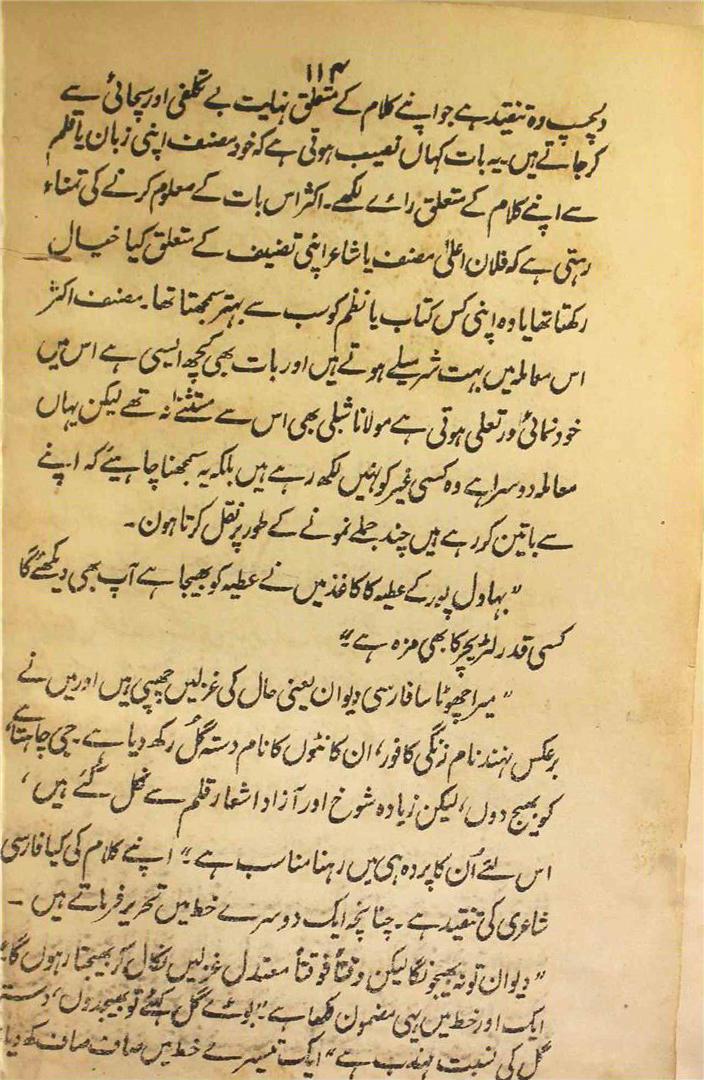 ۱۱۴
دلچسپ وہ تنقید ہے جو اپنے کلام کے متعلق نہایت بے تکلفی اور سچائی سے
کر جاتے ہیں۔ یہ بات کہاں نصیب ہوتی ہے کہ خود مصنف اپنی زبان یا قلم
سے اپنے کلام کے متعلق رائے لکھے۔ اکثر اس بات کے معلوم کرنے کی تمناء
رہتی ہے کہ فلان اعلیٰ مصنف یا شاعر اپنی تصنیف کے متعلق کیا خیال
رکھتا تھا یا وہ اپنی کس کتاب یا نظم کو سب سے بہتر سمجھتا تھا۔ مصنف اکثر
اس معاملہ میں بہت شرمیلے ہوتے ہیں اور بات بھی کچھ ایسی ہے اس میں
خود نمائی اور تعلی ہوتی ہے مولانا شبلی بھی اس سے مستثنےٰ نہ تھے لیکن یہاں
معاملہ دوسرا ہے وہ کسی غیر کو نہیں لکھ رہے ہیں بلکہ یہ سمجھنا چاہیئے کہ اپنے
سے باتین کر رہے ہیں چند جملے نمونے کے طور پر نقل کرتا ہون۔
"بہاول پور کے عطیہ کا کاغذ میں نے عطیہ کو بھیجا ہے آپ بھی دیکھئے گا
کسی قدر لٹریچر کا بھی مزہ ہے"
"میرا چھوٹا سا فارسی دیوان یعنی حال کی غزلیں چھپی ہیں اور میں نے
برعکس نہند نام زنگی کافور، ان کانٹوں کا نام دستہ گل رکھ دیا ہے۔ جی چاہتا ہے
کو بھیج دوں، لیکن زیادہ شوخ اور آزاد اشعار قلم سے نکل گئے ہیں،
اس لئے اُن کا پردہ ہی میں رہنا مناسب ہے" اپنے کلام کی کیا فارسی
شاعری کی تنقید ہے۔ چنانچہ ایک دوسرے خط میں تحریر فرماتے ہیں۔
"دیوان تو نہ بھیجونگا لیکن وقتاً فوقتاً معتدل غزلیں نکال کر بھیجتا رہوں گا"
ایک اور خط میں یہی مضمون لکھا ہے "بوئے گل کہئے تو بھیجدوں، دستہ
گل کی نسبت مہذب ہے" ایک تیسرے خط میں صاف صاف لکھ دیا